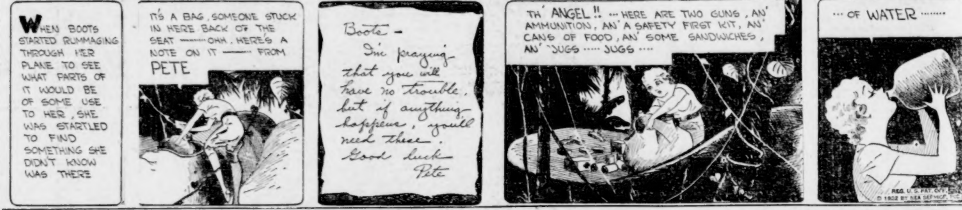 WHEN BOOTS
STARTED RUMMAGING
THROUGH HER
PLANE TO SEE
WHAT PARTS OF
IT WOULD BE
OF SOME USE
TO HER, SHE
WAS STARTLED
TO FIND
SOMETHING SHE
DIDN'T KNOW
WAS THERE
IT'S A BAG, SOMEONE STUCK
IN HERE BACK OF THE
SEAT —— OHH, HERE'S A
NOTE ON IT —— FROM
PETE
Boots –
I'm praying
that you will
have no trouble,
but if anything
happens, you'll
need these.
Good luck
Pete
TH' ANGEL!! ... HERE ARE TWO GUNS, AN'
AMMUNITION, AN' A SAFETY FIRST KIT, AN'
CANS OF FOOD, AN' SOME SANDWICHES,
AN' JUGS ..... JUGS ....
... OF WATER .......
REG. U. S. PAT. OFF.
© 1932 BY NEA SERVICE, INC.